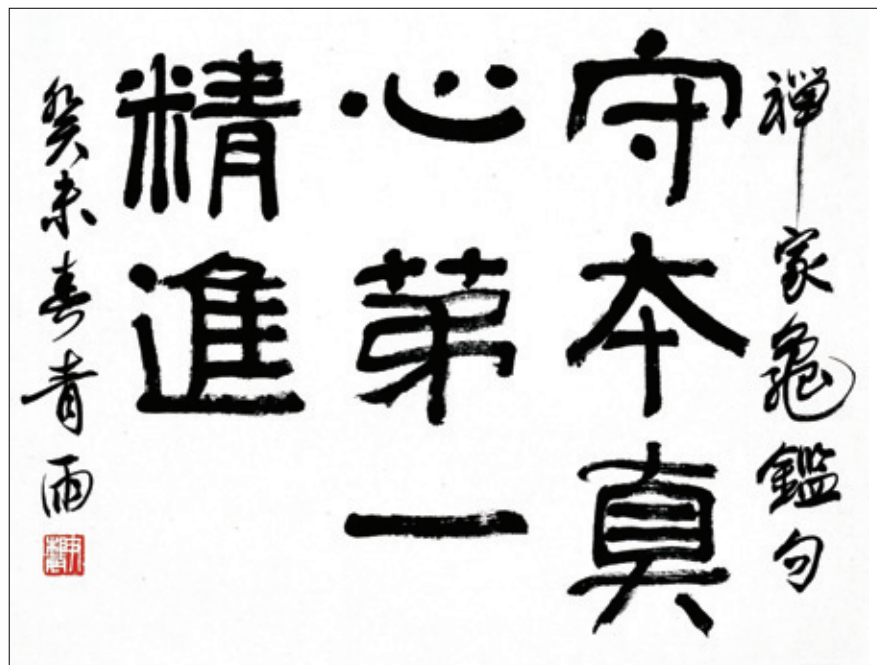 禪家龜鑑句
守本真
心第一
精進
癸未春青雨